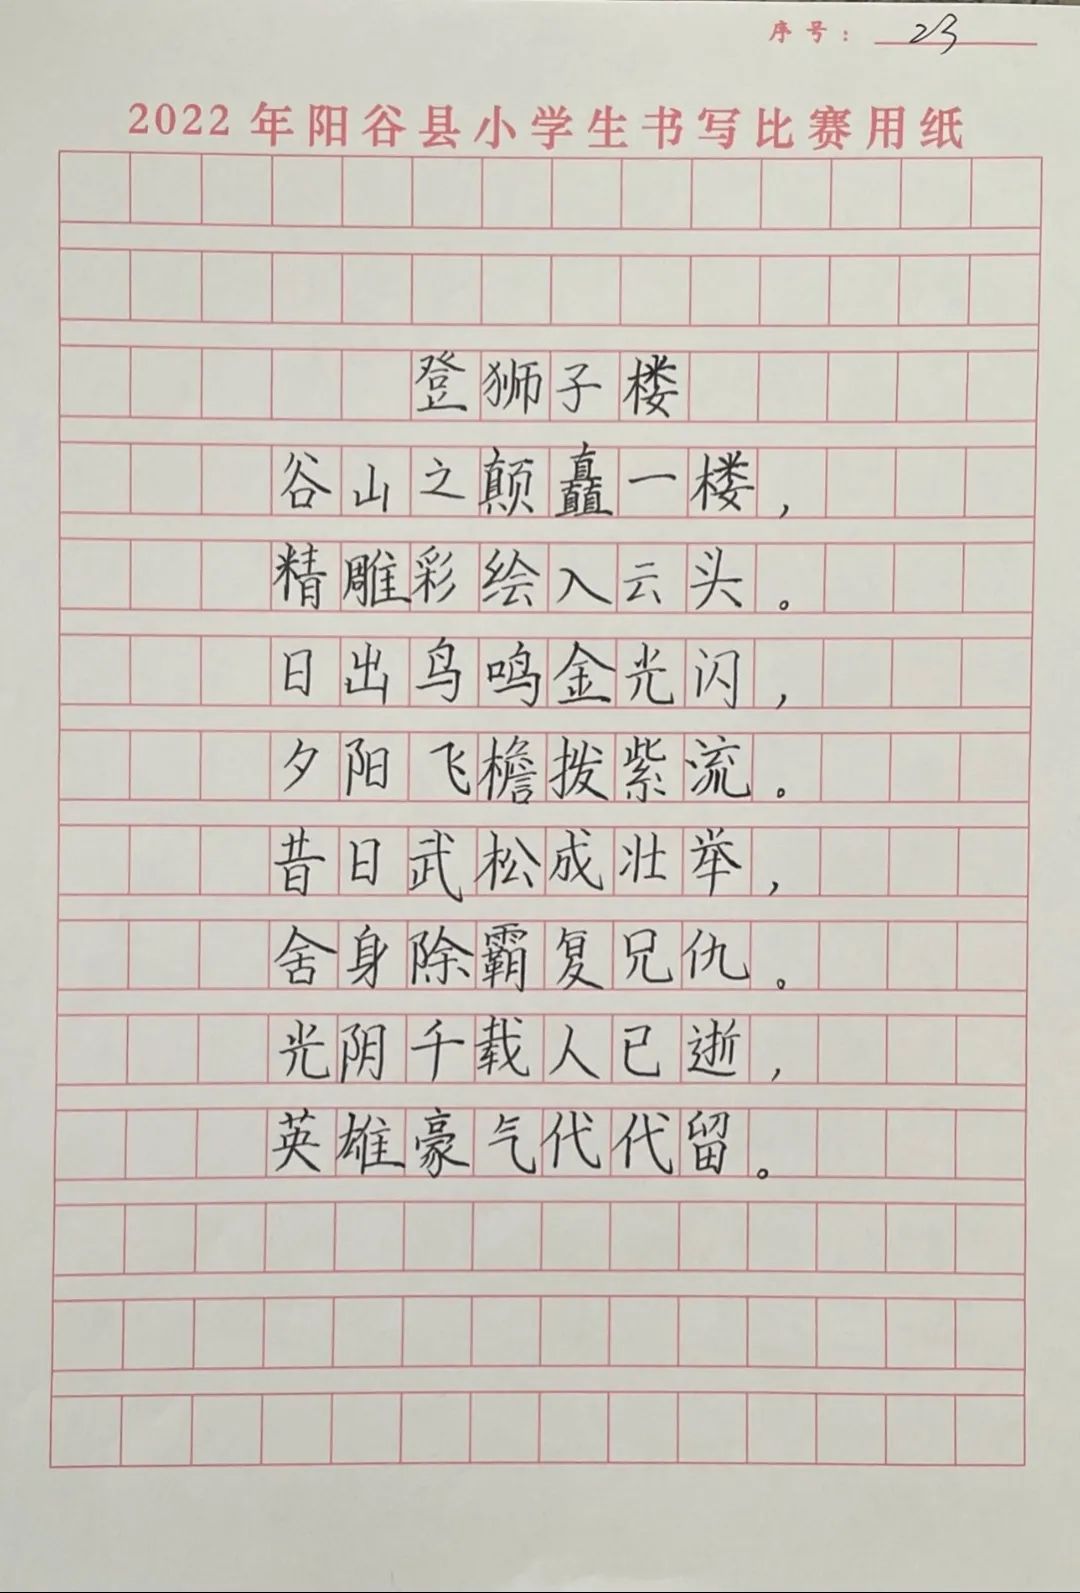 序号：23
2022年阳谷县小学生书写比赛用纸
登狮子楼
谷山之颠矗一楼，
精雕彩绘入云头。
日出鸟鸣金光闪，
夕阳飞檐拨紫流。
昔日武松成壮举，
舍身除霸复兄仇。
光阴千载人已逝，
英雄豪气代代留。